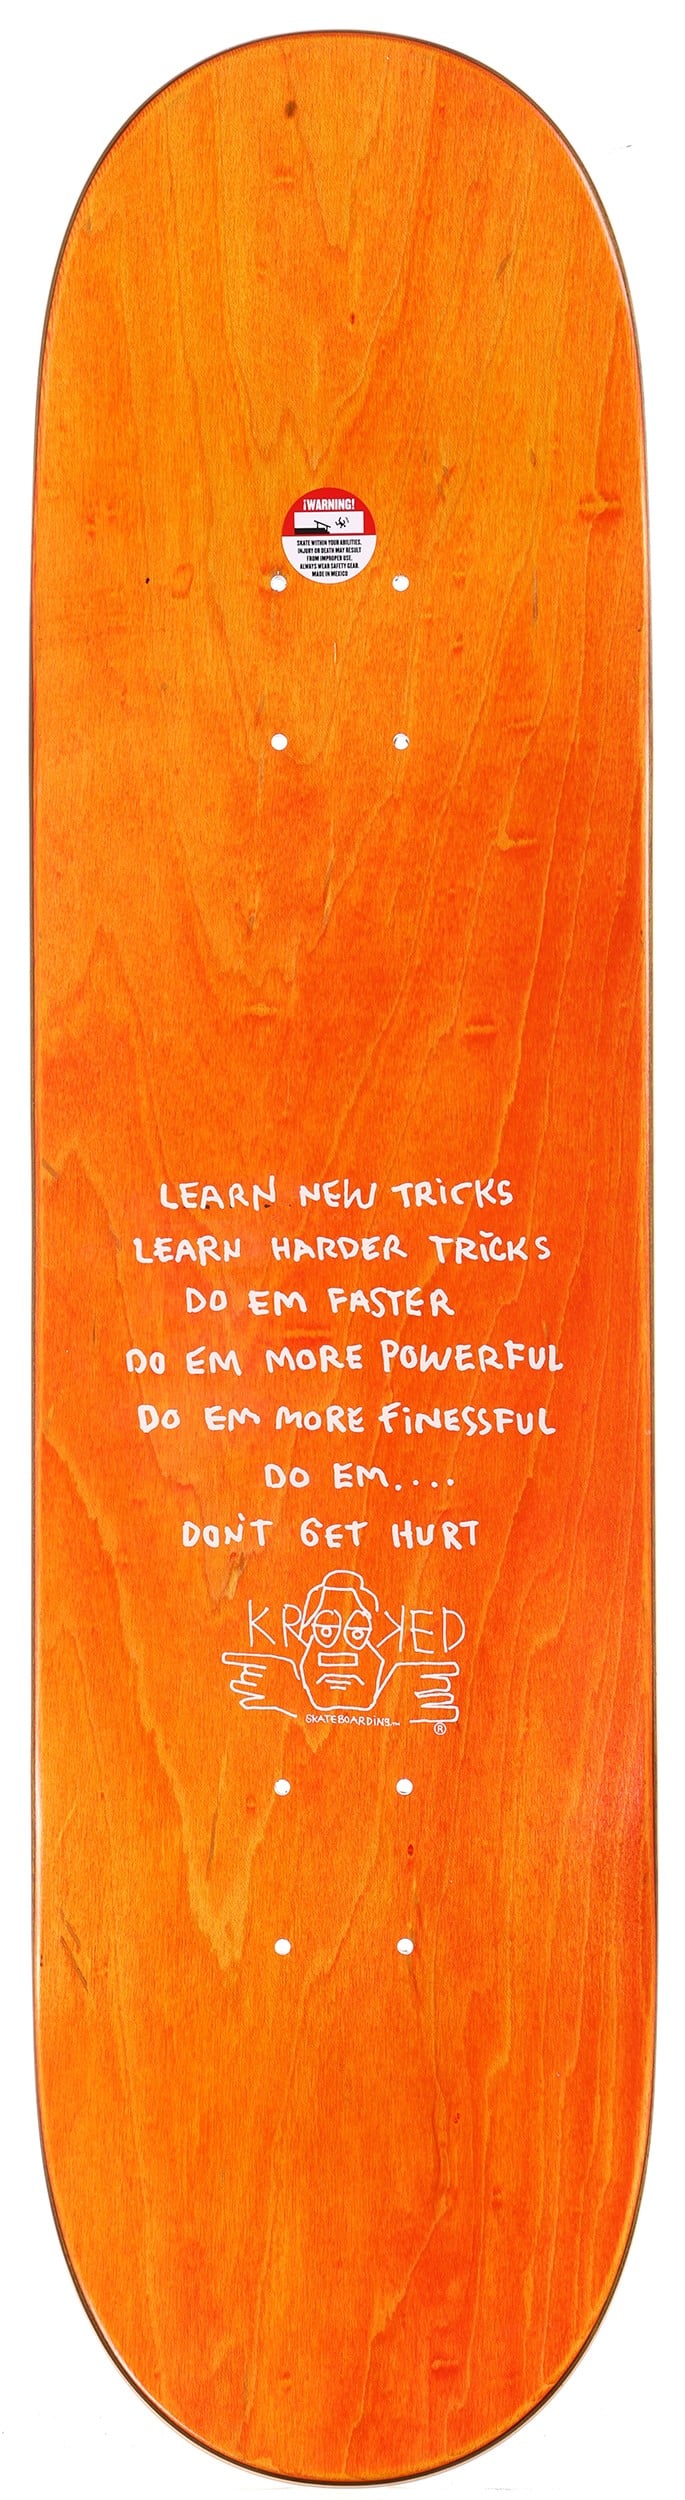 ¡WARNING!
SKATE WITHIN YOUR ABILITIES.
INJURY OR DEATH MAY RESULT
FROM IMPROPER USE.
ALWAYS WEAR SAFETY GEAR.
MADE IN MEXICO
LEARN NEW TRiCKS
LEARN HARDER TRiCKS
DO EM FASTER
DO EM MORE POWERFUL
DO EM MORE FiNESSFUL
DO EM....
DON'T GET HURT
KROOKED
SKATEBOARDiNG™
®